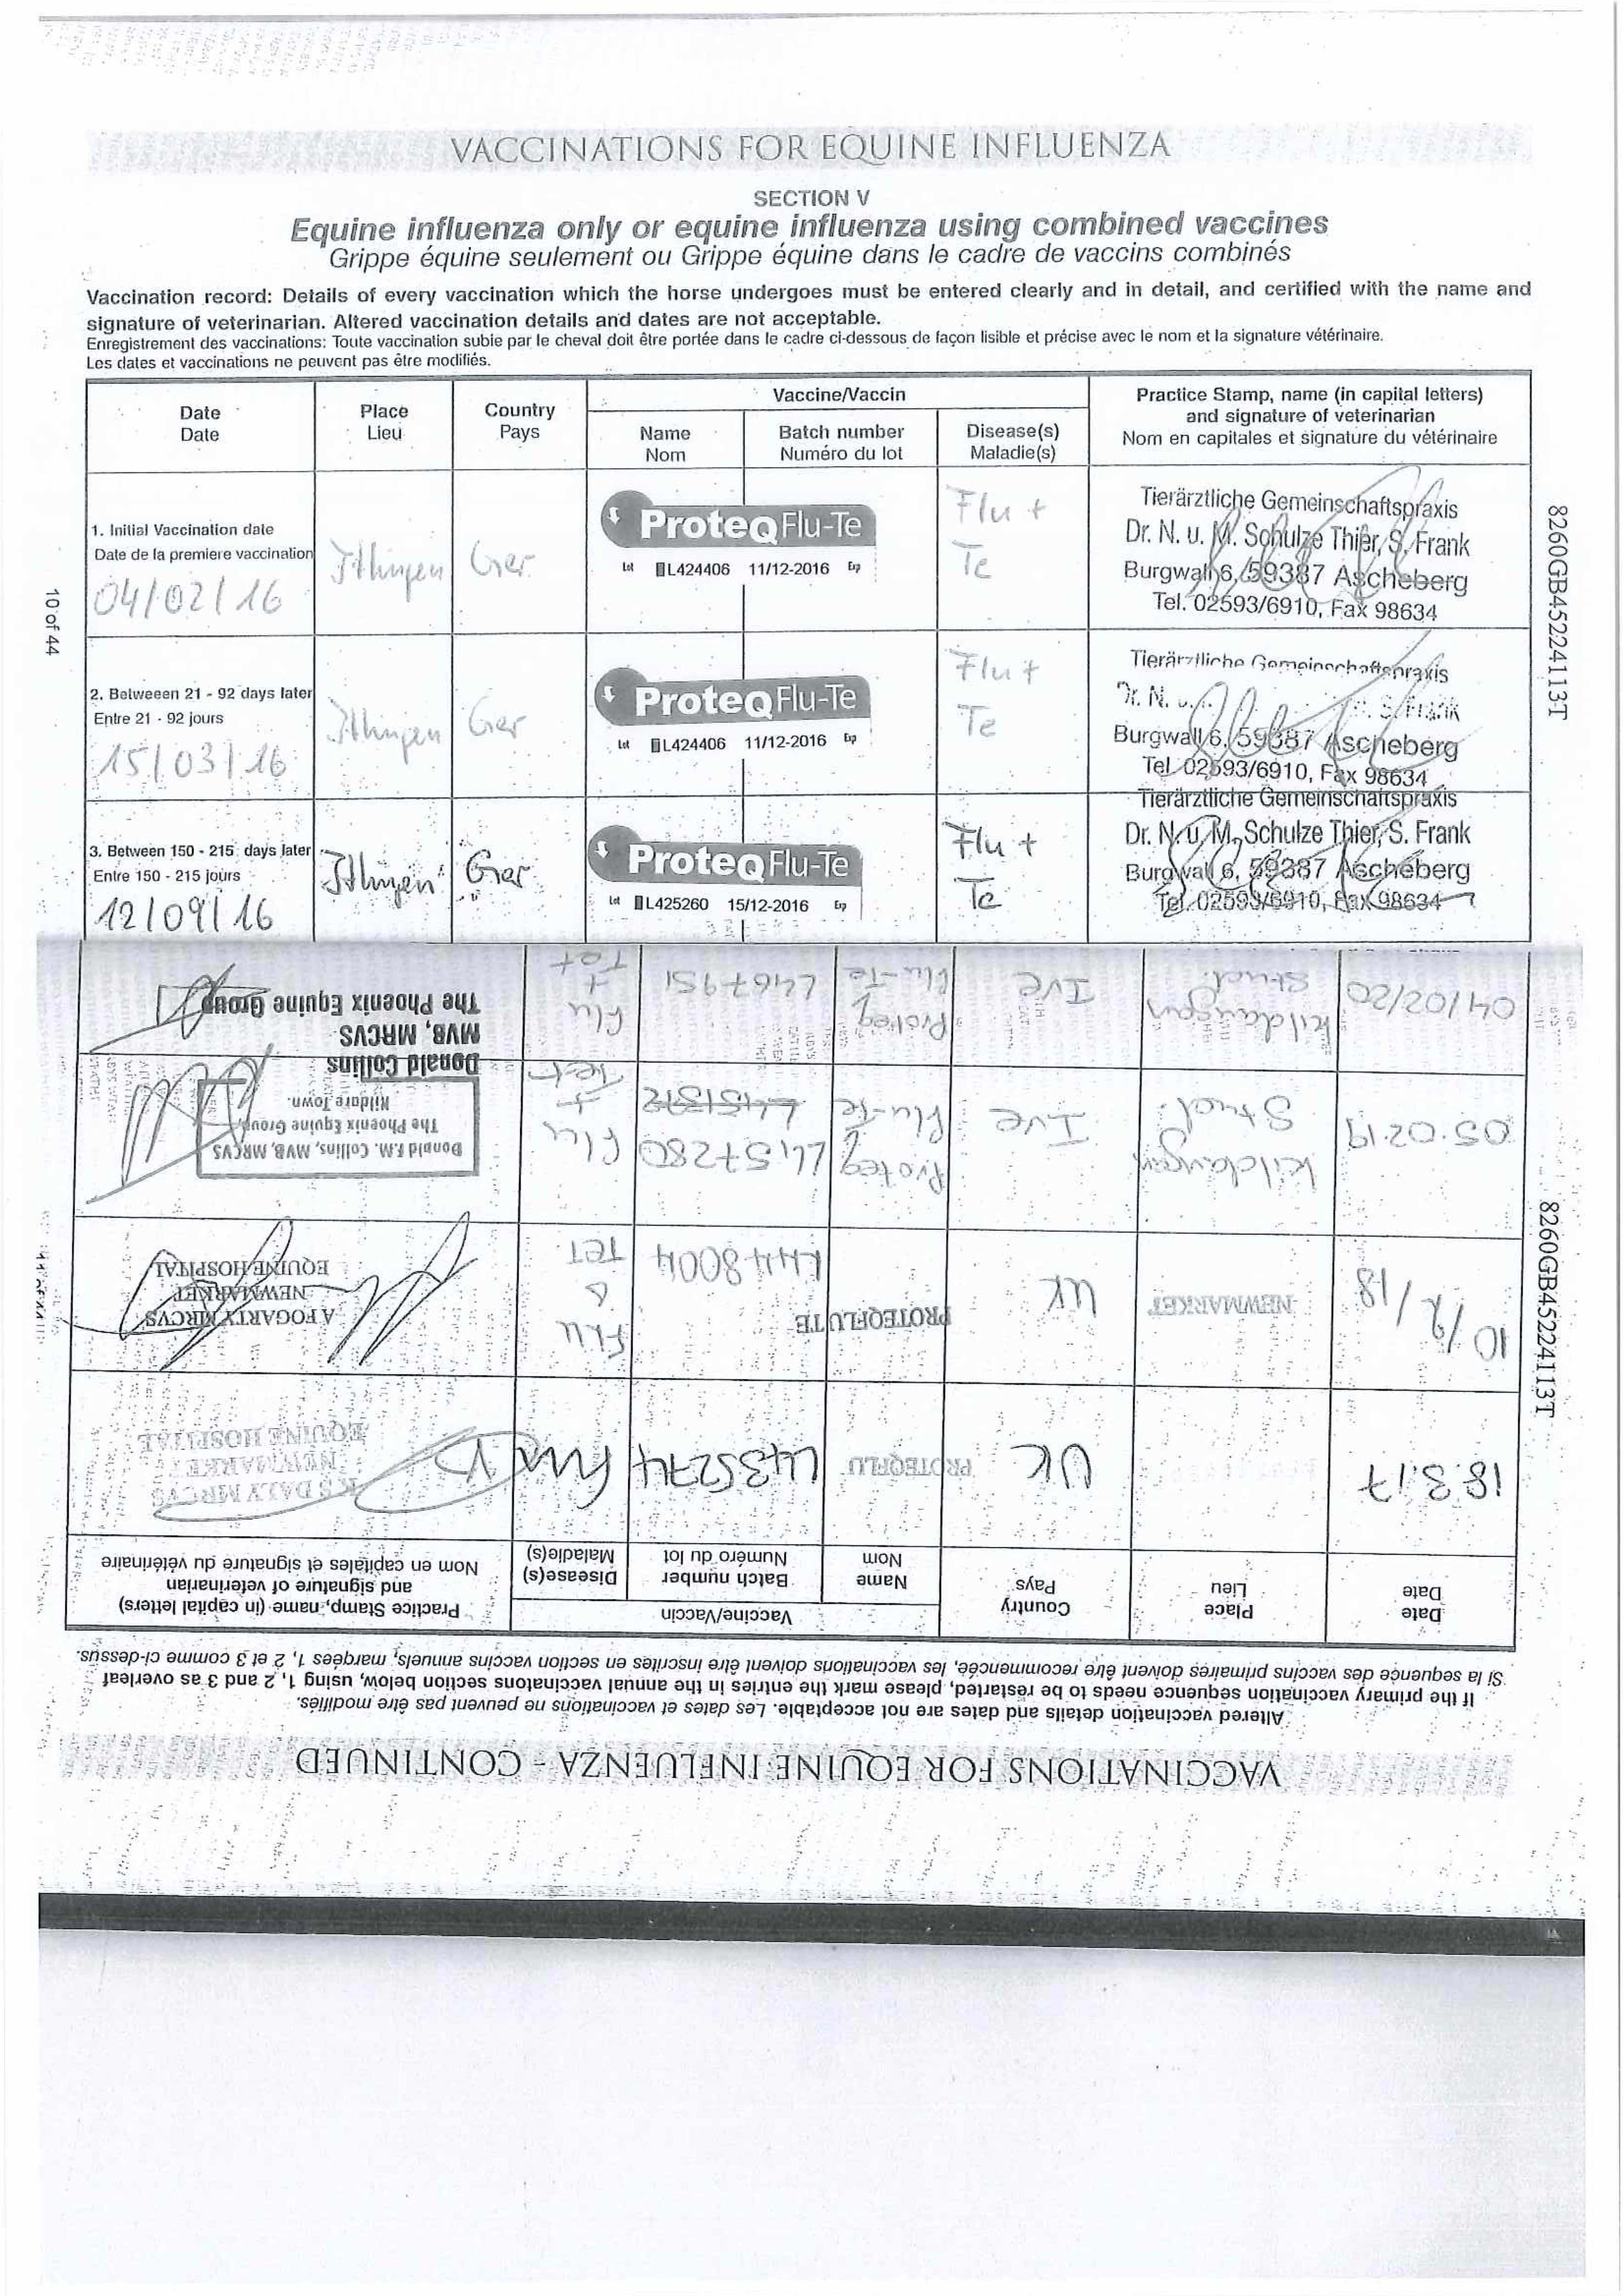 VACCINATIONS FOR EQUINE INFLUENZA
SECTION V
Equine influenza only or equine influenza using combined vaccines
Grippe équine seulement ou Grippe équine dans le cadre de vaccins combinés
Vaccination record: Details of every vaccination which the horse undergoes must be entered clearly and in detail, and certified with the name and
signature of veterinarian. Altered vaccination details and dates are not acceptable.
Enregistrement des vaccinations: Toute vaccination subie par le cheval doit être portée dans le cadre ci-dessous de façon lisible et précise avec le nom et la signature vétérinaire.
Les dates et vaccinations ne peuvent pas être modifiés.
Date
Date
Place
Lieu
Country
Pays
Vaccine/Vaccin
Name
Nom
Batch number
Numéro du lot
Disease(s)
Maladie(s)
Practice Stamp, name (in capital letters)
and signature of veterinarian
Nom en capitales et signature du vétérinaire
1. Initial Vaccination date
Date de la premiere vaccination
04/02/16
Ger
ProteqFlu-Te
Lot L424406 11/12-2016 Exp
Flu +
Te
Tierärztliche Gemeinschaftspraxis
Dr. N. u. M. Schulze Thier, S. Frank
Burgwall 6, 59387 Ascheberg
Tel. 02593/6910, Fax 98634
2. Betweeen 21 - 92 days later
Entre 21 - 92 jours
15/03/16
Ger
ProteqFlu-Te
Lot L424406 11/12-2016 Exp
Flu +
Te
Tierärztliche Gemeinschaftspraxis
Burgwall 6, 59387 Ascheberg
Tel. 02593/6910, Fax 98634
3. Between 150 - 215 days later
Entre 150 - 215 jours
12/09/16
Ger
ProteqFlu-Te
Lot L425260 15/12-2016 Exp
Flu +
Te
Tierärztliche Gemeinschaftspraxis
Dr. N. u. M. Schulze Thier, S. Frank
Burgwall 6, 59387 Ascheberg
Tel. 02593/6910, Fax 98634
10 of 44
8260GB45224113T
VACCINATIONS FOR EQUINE INFLUENZA - CONTINUED
Altered vaccination details and dates are not acceptable. Les dates et vaccinations ne peuvent pas être modifiés.
If the primary vaccination sequence needs to be restarted, please mark the entries in the annual vaccinations section below, using 1, 2 and 3 as overleaf
Si la sequence des vaccins primaires doivent être recommencée, les vaccinations doivent être inscrites en section vaccins annuels, marqées 1, 2 et 3 comme ci-dessus.
Date
Date
Place
Lieu
Country
Pays
Vaccine/Vaccin
Name
Nom
Batch number
Numéro du lot
Disease(s)
Maladie(s)
Practice Stamp, name (in capital letters)
and signature of veterinarian
Nom en capitales et signature du vétérinaire
18.3.17
UK
PROTEQFLU
L435274
Flu
K S DALY MRCVS
NEWMARKET
EQUINE HOSPITAL
10/2/18
NEWMARKET
UK
PROTEQFLU TE
FLU
&
TET
A FOGARTY MRCVS
NEWMARKET
EQUINE HOSPITAL
05.02.19
Kildangan
Stud.
Ire
Proteq
Flu-Te
L457280
L451512
Flu
+
Tet
Donald F.M. Collins, MVB, MRCVS
The Phoenix Equine Group,
Kildare Town.
04/02/20
Kildangan
Stud.
Ire
Proteq
Flu-Te
L467951
Flu
+
Tet
Donald Collins
MVB, MRCVS
The Phoenix Equine Group
8260GB45224113T